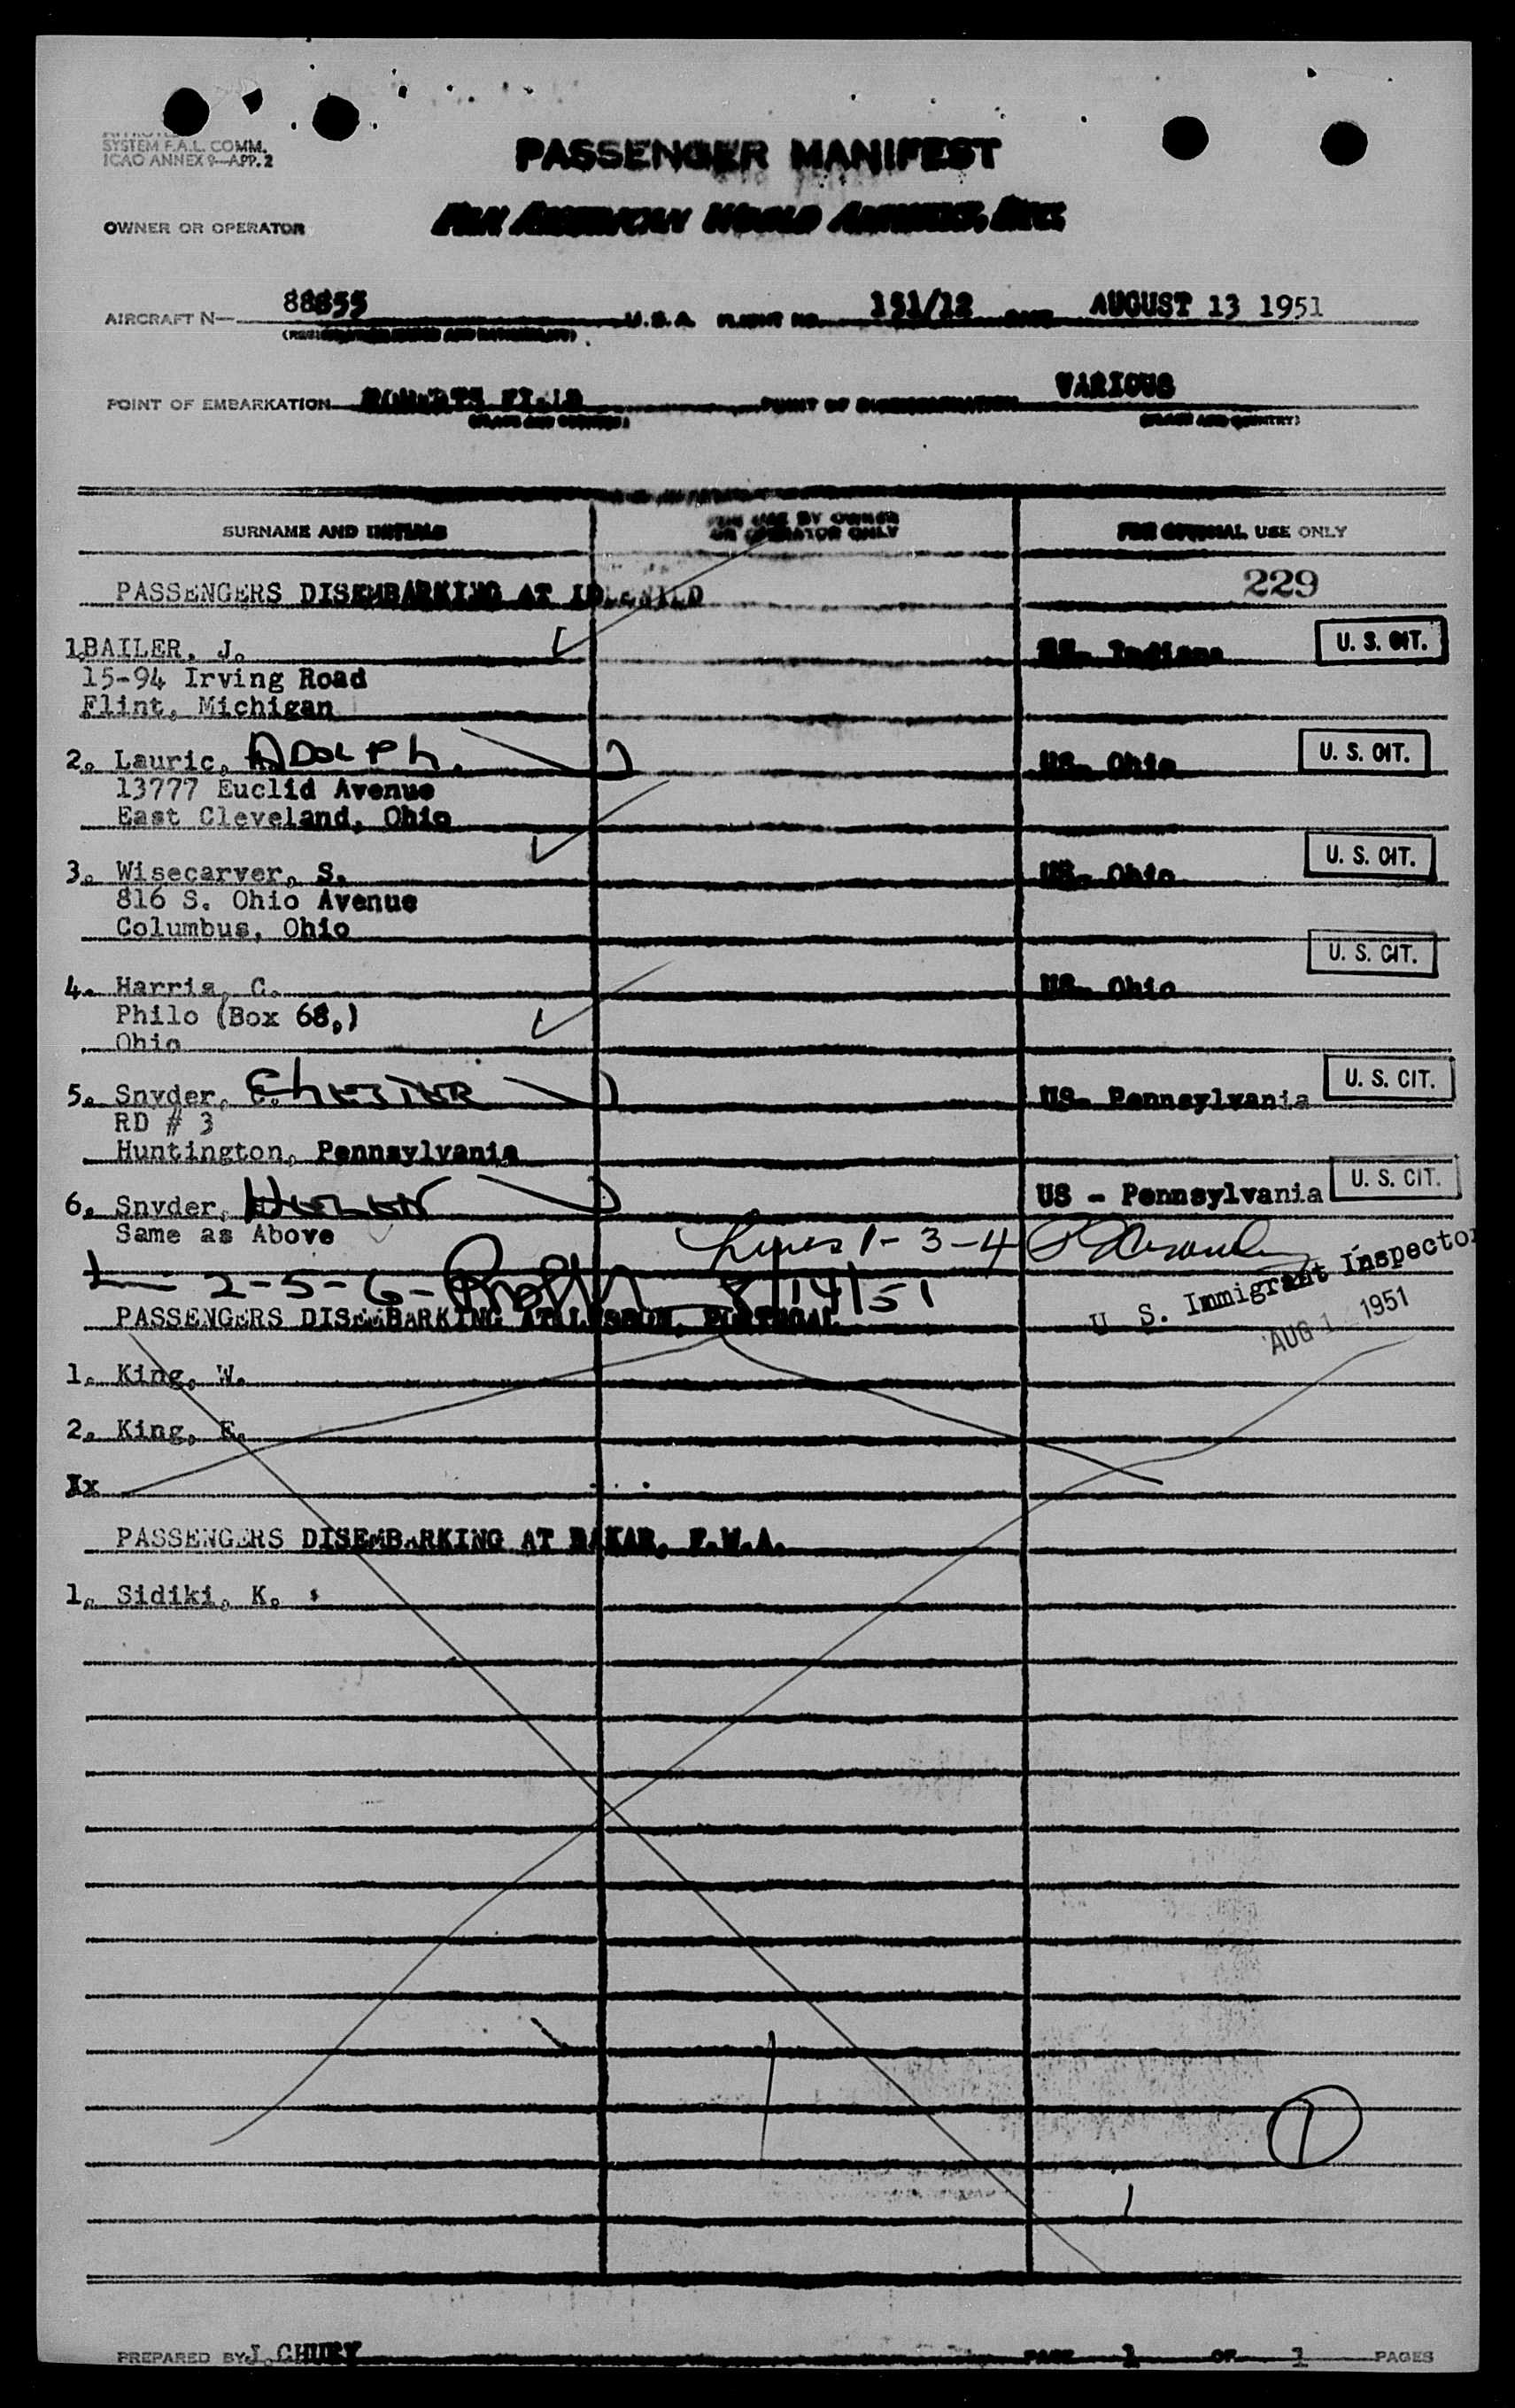 SYSTEM F.A.L. COMM.
ICAO ANNEX 9—APP. 2
PASSENGER MANIFEST
OWNER OR OPERATOR PAN AMERICAN WORLD AIRWAYS, INC.
AIRCRAFT N— 88855 U.S.A FLIGHT NO. 151/12 DATE AUGUST 13 1951
POINT OF EMBARKATION ROBERTS FIELD POINT OF DISEMBARKATION VARIOUS
(PLACE AND COUNTRY) (PLACE AND COUNTRY)
SURNAME AND INITIALS FOR USE BY OWNER OR OPERATOR ONLY FOR OFFICIAL USE ONLY
PASSENGERS DISEMBARKING AT IDLEWILD 229
1.BAILER, J. US. Indiana U. S. CIT.
15-94 Irving Road
Flint, Michigan
2. Lauric, ADOLPh. US. Ohio U. S. CIT.
13777 Euclid Avenue
East Cleveland, Ohio
3. Wisecarver, S. US. Ohio U. S. CIT.
816 S. Ohio Avenue
Columbus, Ohio
U. S. CIT.
4. Harris, C. US. Ohio
Philo (Box 68,)
Ohio
5. Snyder, ChESTER US. Pennsylvania U. S. CIT.
RD # 3
Huntington, Pennsylvania
6. Snyder, HELEN US - Pennsylvania U. S. CIT.
Same as Above
Lines 1-3-4
2-5-6- 8/14/51
U. S. Immigrant Inspector
AUG 1 1951
PASSENGERS DISEMBARKING AT LISBON, PORTUGAL
1. King, W.
2. King, E.
Xx
PASSENGERS DISEMBARKING AT DAKAR, F.W.A.
1. Sidiki, K.
1
PREPARED BY J. CHURY PAGE 1 OF 1 PAGES